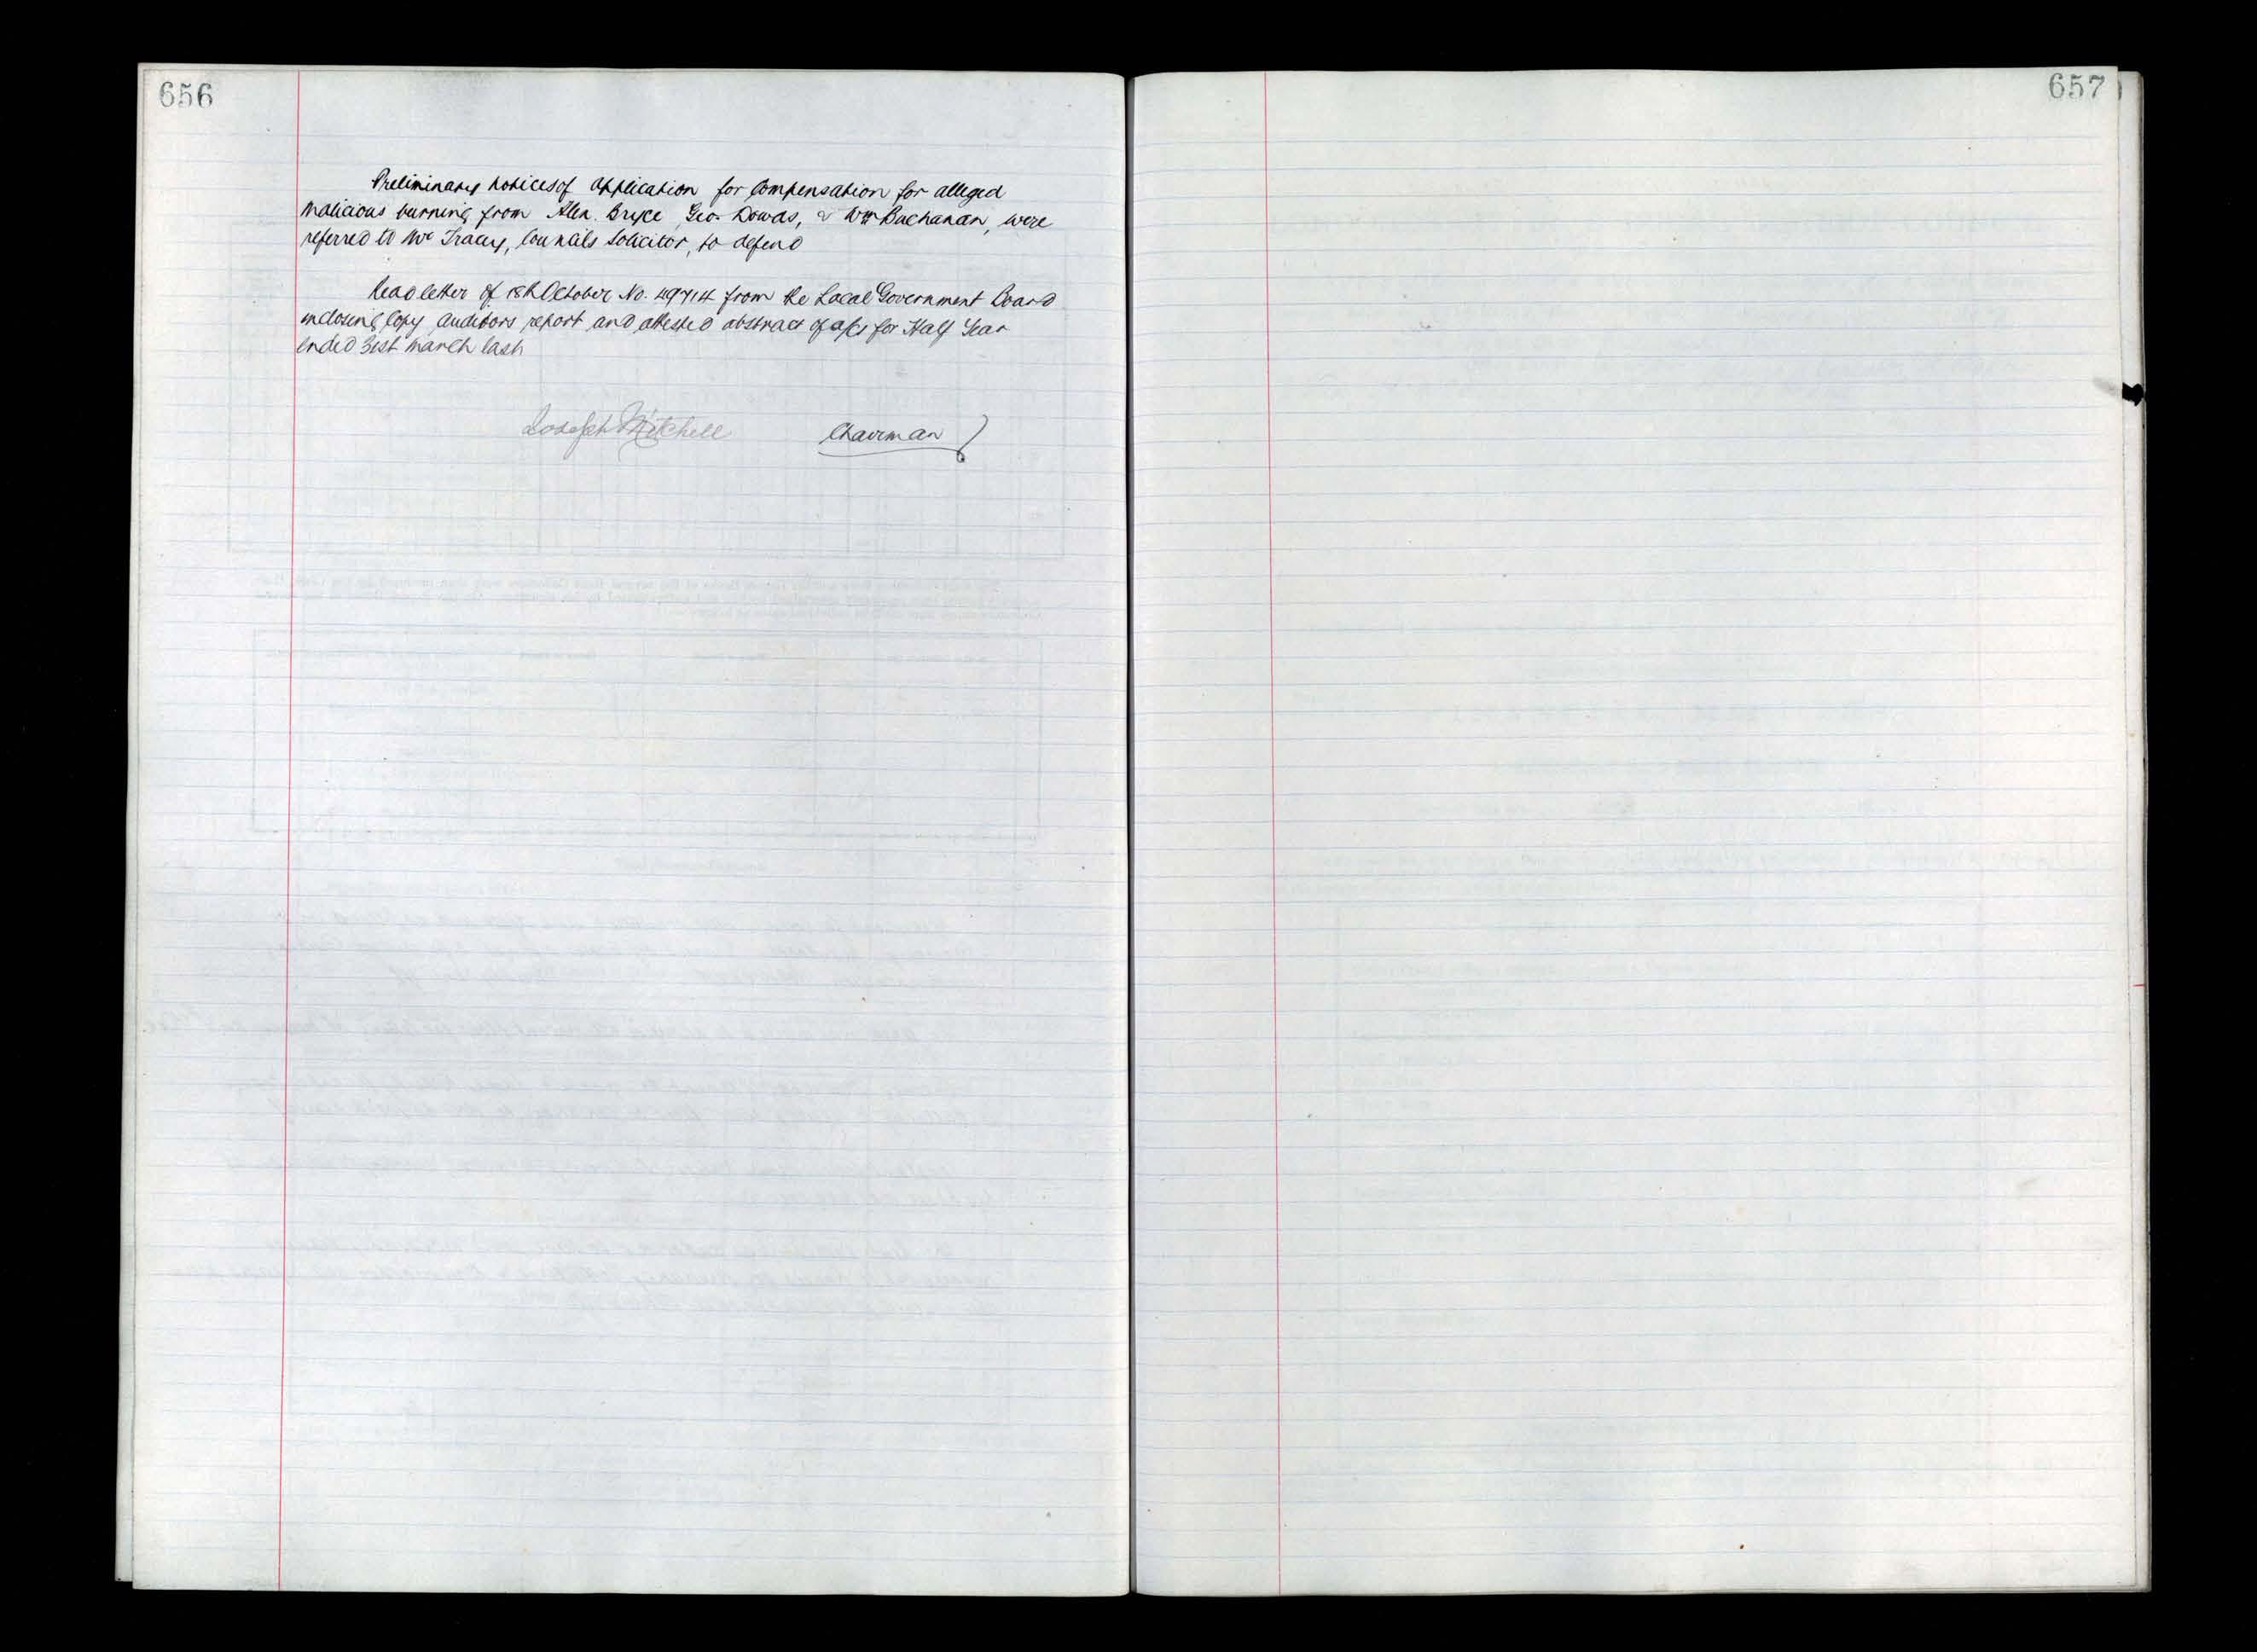 656
Preliminary notices of application for Compensation for alleged
Malicious burning from Alex. Bryce, Geo. Dowas, & Wm Buchanan, were
referred to Mr Tracey, Councils Solicitor, to defend
Read letter of 18th October No. 49714 from the Local Government Board
inclosing Copy Auditors report and attested abstract of a/cs for Half Year
ended 31st March last
Joseph Mitchell Chairman
657